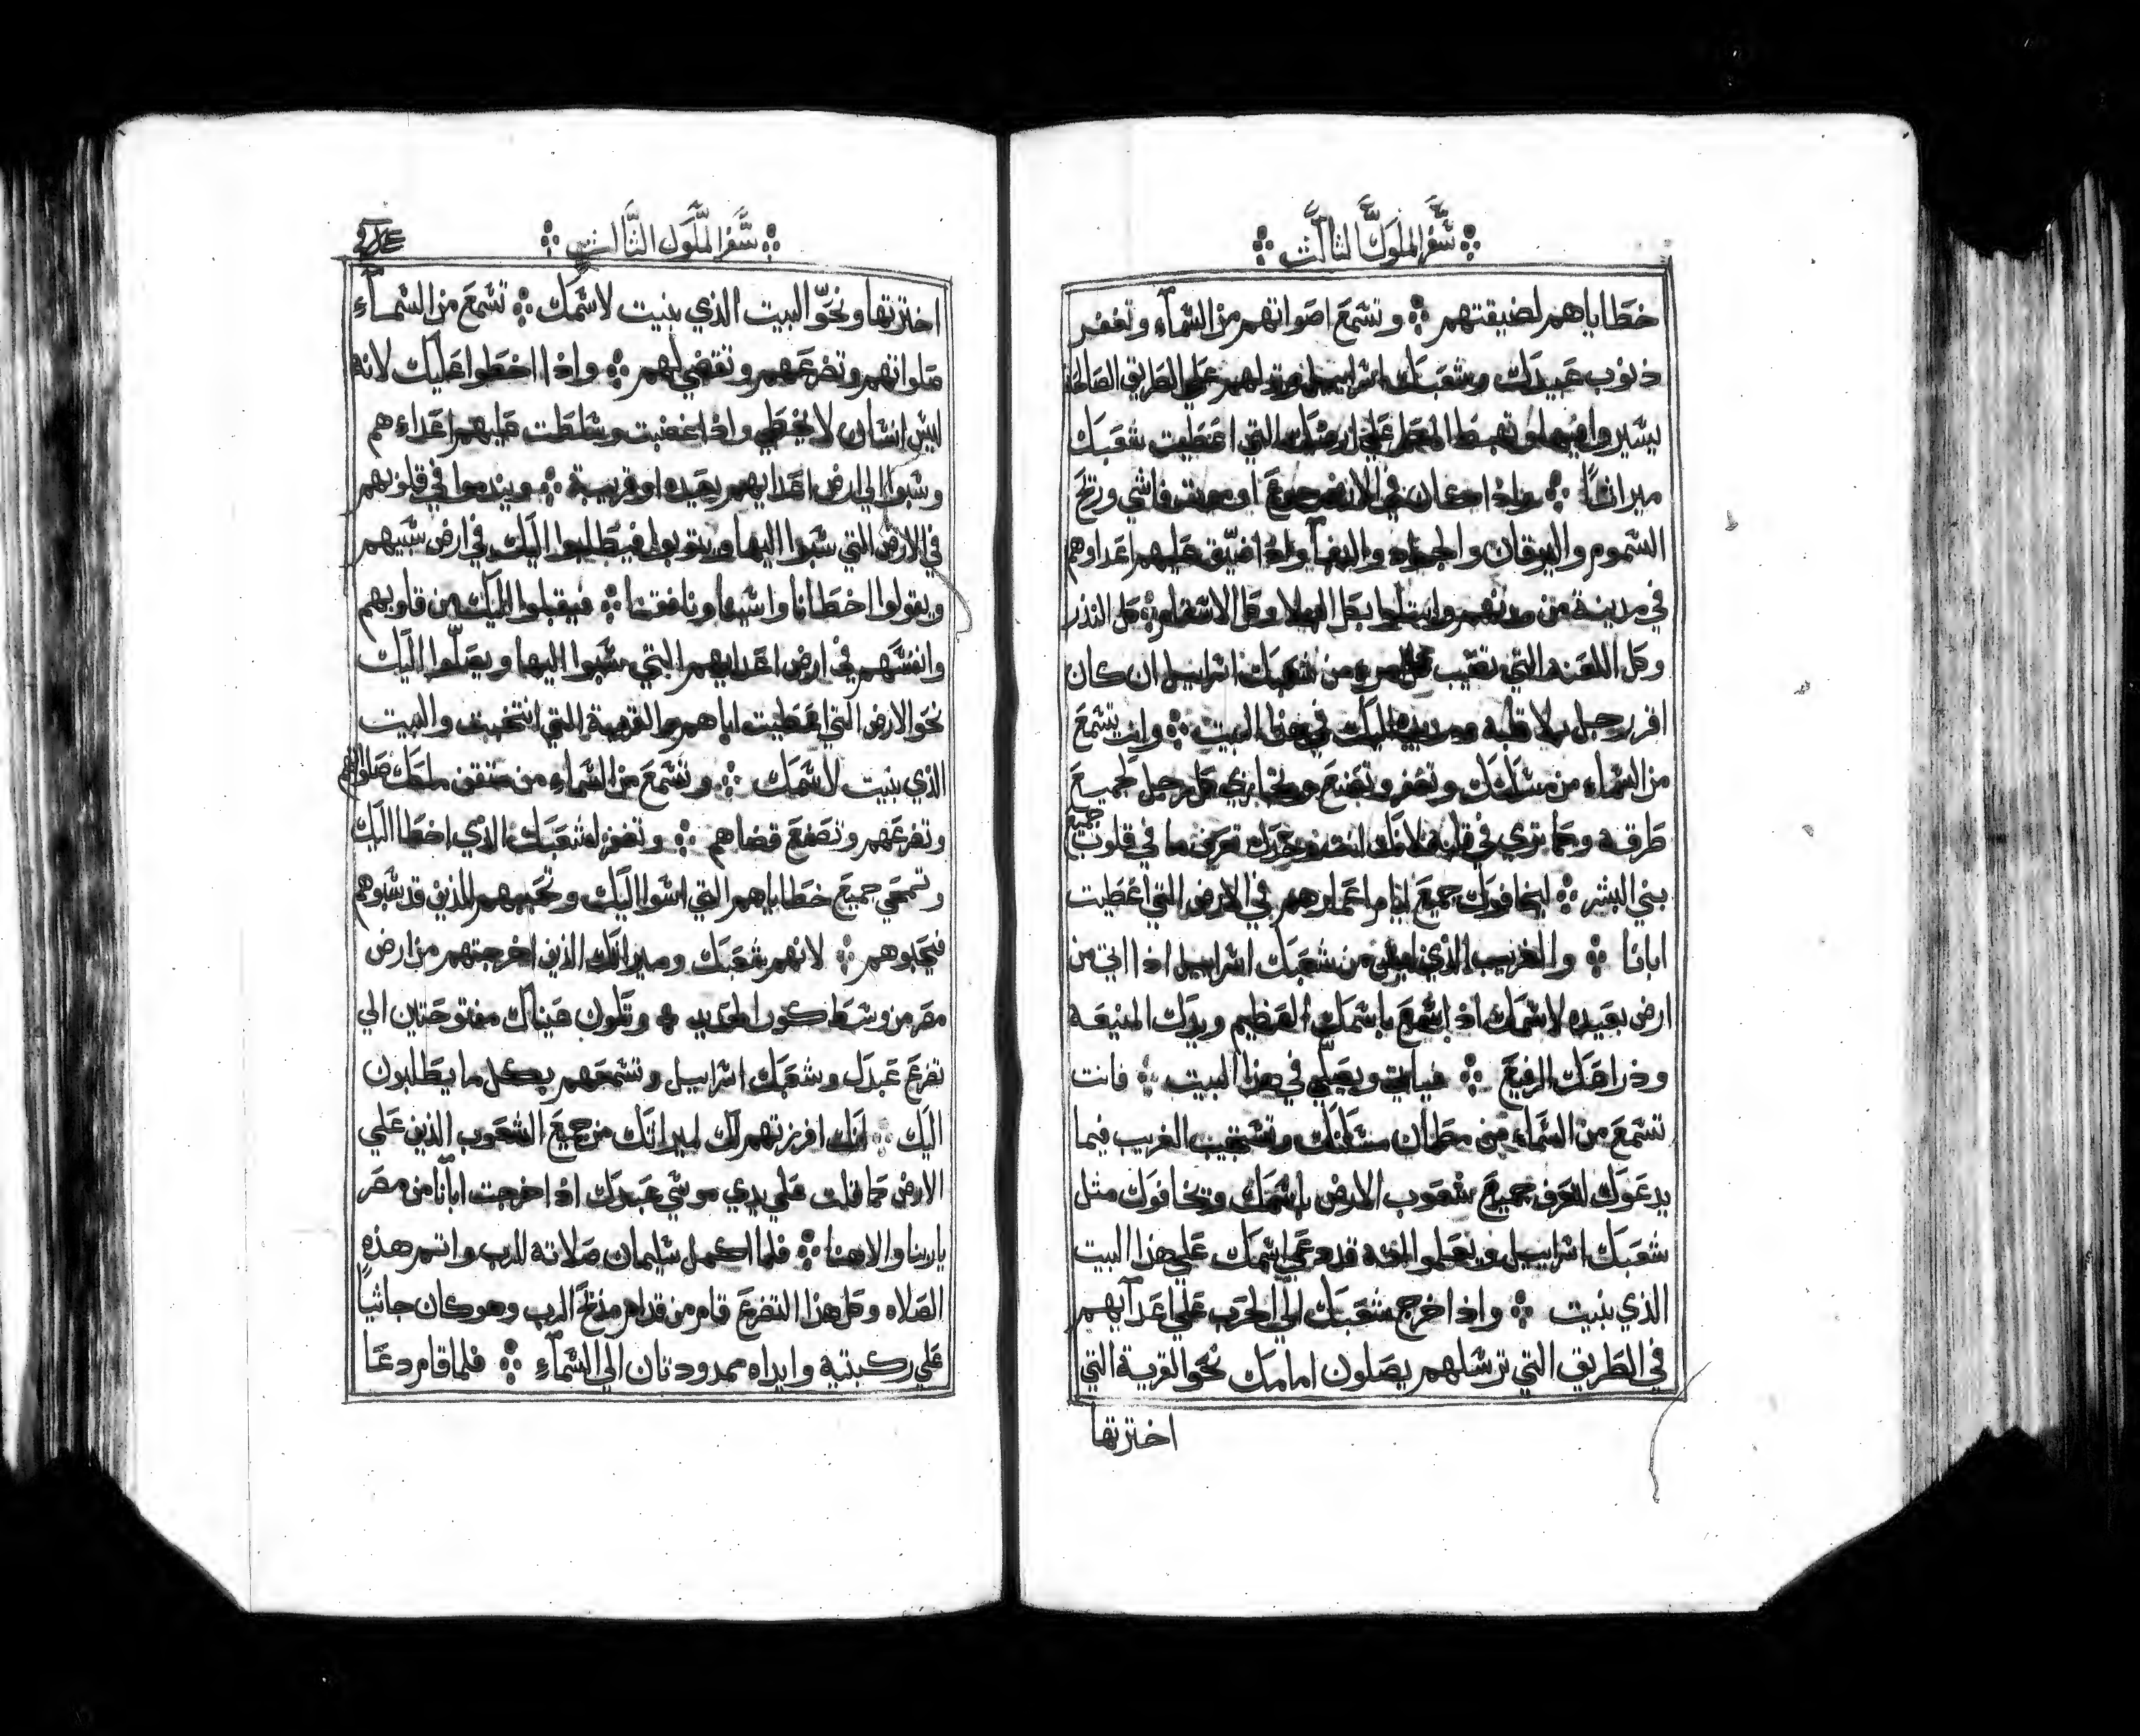 سفر الملوك الثالث
خطاياهم لضيقتهم وتسمع اصواتهم من السماء وتغفر
ذنوب عبيدك وشعبك اسرايل على الطريق الصالحه
يسيروا فيها المطر على ارضك التي اعطيت شعبك
ميراثاً واذا كان في الارض جوع او موت
السموم واليرقان والجراد واذا ضيق عليهم اعداوهم
في مدينة من مدنهم وكل الاسقام كل النذر
وكل اللعنه التي تصيب من شعبك اسرايل ان كان
اقر رجل في هذا البيت وانت تسمع
من السماء من مسكنك وتغفر وتصنع وتجازي كل رجل لجميع
طرقه وكما تري في قلبه لانك انت وحدك تعرف ما في قلوب جميع
بني البشر ليخافوك جميع ايام اعمارهم في الارض التي اعطيت
ابانا والغريب الذي ليس من شعبك اسرايل اذا اتي من
ارض بعيده لاسمك اذ اسمع باسمك العظيم ويدك المنيعه
وذراعك الرفيع فياتي ويصلي في هذا البيت فانت
تسمع من السماء من مكان مسكنك وتستجيب الغريب فيما
يدعوك لتعرف جميع شعوب الارض باسمك وتخافوك مثل
شعبك اسراييل ويعلموا انه قد دعي اسمك على هذا البيت
الذي بنيت واذا خرج شعبك الي الحرب علي اعدآيهم
في الطريق التي ترسلهم يصلون امامك نحو القرية التي
اخترتها
سفر الملوك الثالث
اخترتها ونحو البيت الذي بنيت لاسمك تسمع من السمآء
صلواتهم وتضرعهم وتقضي لهم واذا اخطوا عليك لانه
ليس انسان لا يخطي واذا غضبت وسلطت عليهم اعداءهم
وسبوا الي ارض اعدايهم بعيده او قريبة ويندموا في قلوبهم
في الارض التي سبوا اليها ويتوبوا فيطلبوا اليك في ارض سبيهم
ويقولوا اخطانا واسينا ونافقنا فيقبلوا اليك من قلوبهم
وانفسهم في ارض اعدايهم التي سبوا اليها ويصلّوا اليك
نحو الارض التي اعطيت اباهم والقرية التي انتخبت والبيت
الذي بنيت لاسمك وتسمع من السماء من صلواتهم
وتضرعهم وتصنع قضاهم وتغفر لشعبك الذي اخطا اليك
وتمحي جميع خطاياهم التي اسوا اليك وتحببهم للذين قد سبوهم
فيحبوهم لانهم شعبك وميراثك الذين اخرجتهم من ارض
مصر من وسط كور الحديد وتكون عيناك مفتوحتين الي
تضرع عبدك وشعبك اسراييل وتسمعهم بكل ما يطلبون
اليك انك افرزتهم لك لميراثك من جميع الشعوب الذين علي
الارض كما قلت علي يدي موسي عبدك اذ اخرجت ابانا من مصر
ياربنا والاهنا فلما اكمل سليمان صلاته للرب واتم هذه
الصلاه وكل هذا التضرع قام من قدام مذبح الرب وهو كان جاثياً
علي ركبتيه وايداه ممدودتان الي السماء فلما قام دعا